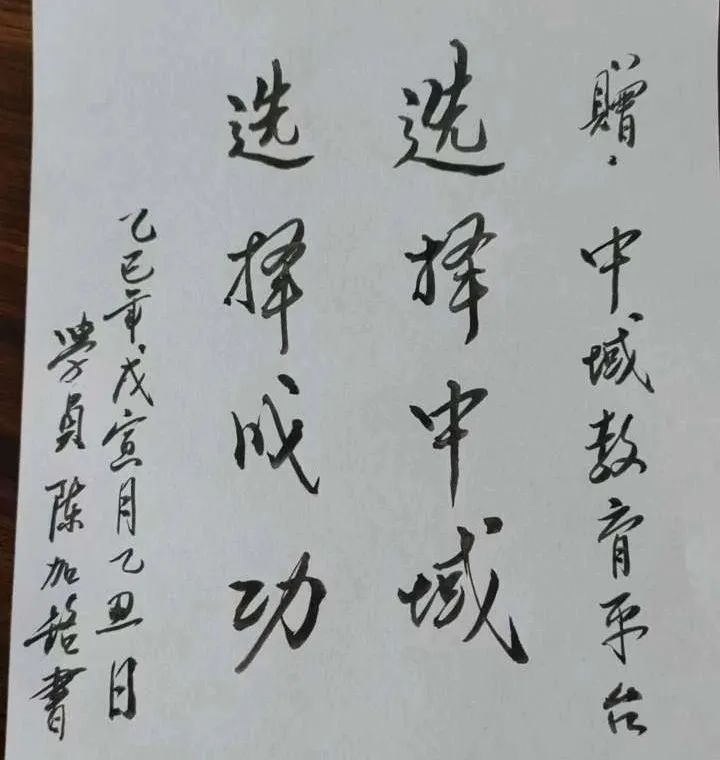 贈：中域教育平台
选择中域
选择成功
乙巳年戊寅月乙丑日
學員陈加铭書